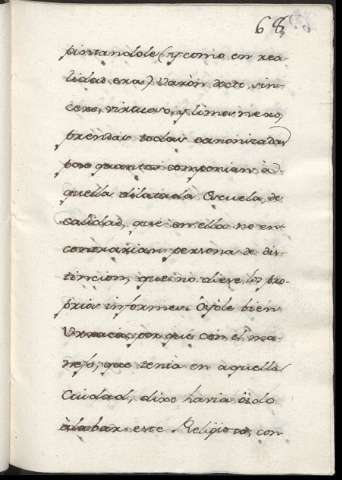 68
pintandole (y como en rea-
lidad era) Varon docto, sin-
cero, virtuoso, y limosnero,
prendas todas canonizadas
por quantos componian, a-
quella dilatada Escuela de
caridad, que en ella no en-
contrarian persona de dis-
tincion, que no diese los pro-
prios informes. Oyole bien
Urraca, por que con el ma-
nejo, que tenia en aquella
Ciudad, dixo havia oido
alabar este Religioso, con